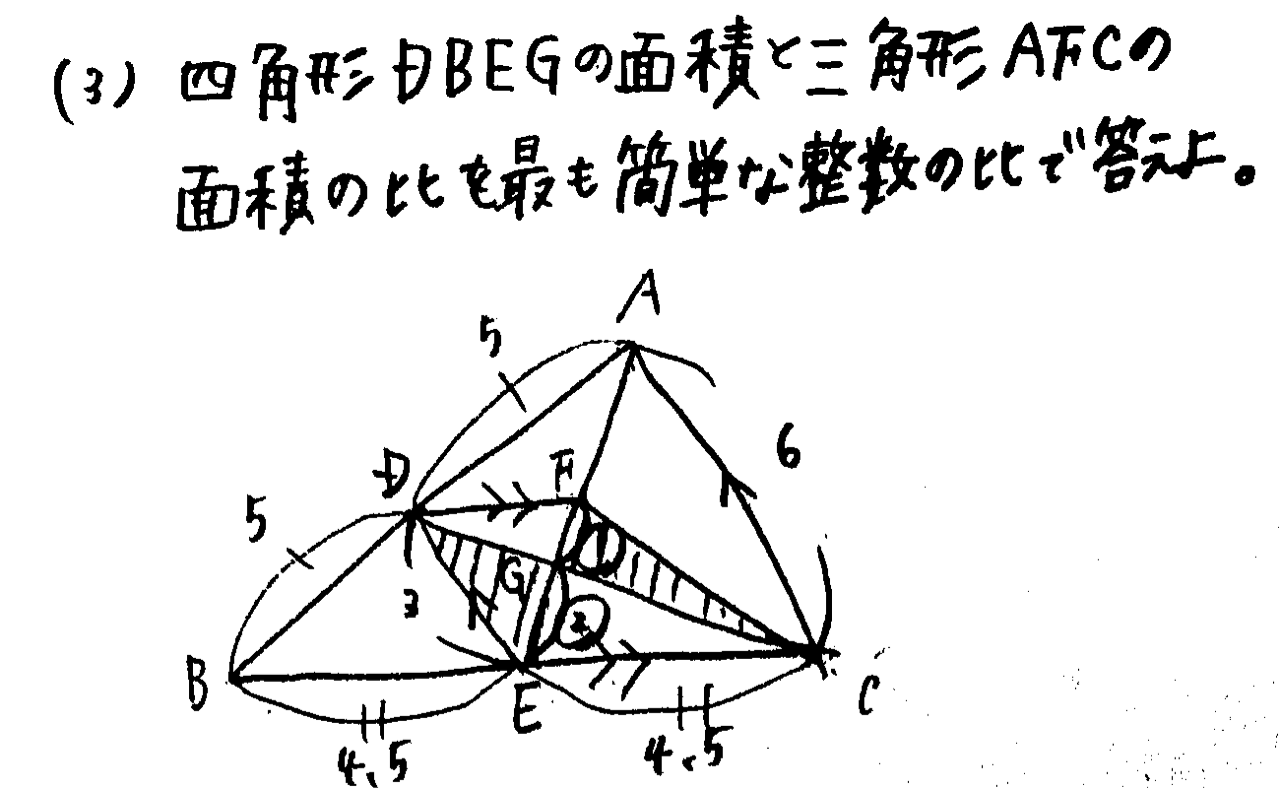 (3) 四角形DBEGの面積と三角形AFCの
面積の比を最も簡単な整数の比で答えよ。
A
5
6
D
F
5
G
①
3
②
B
E
C
4.5
4.5